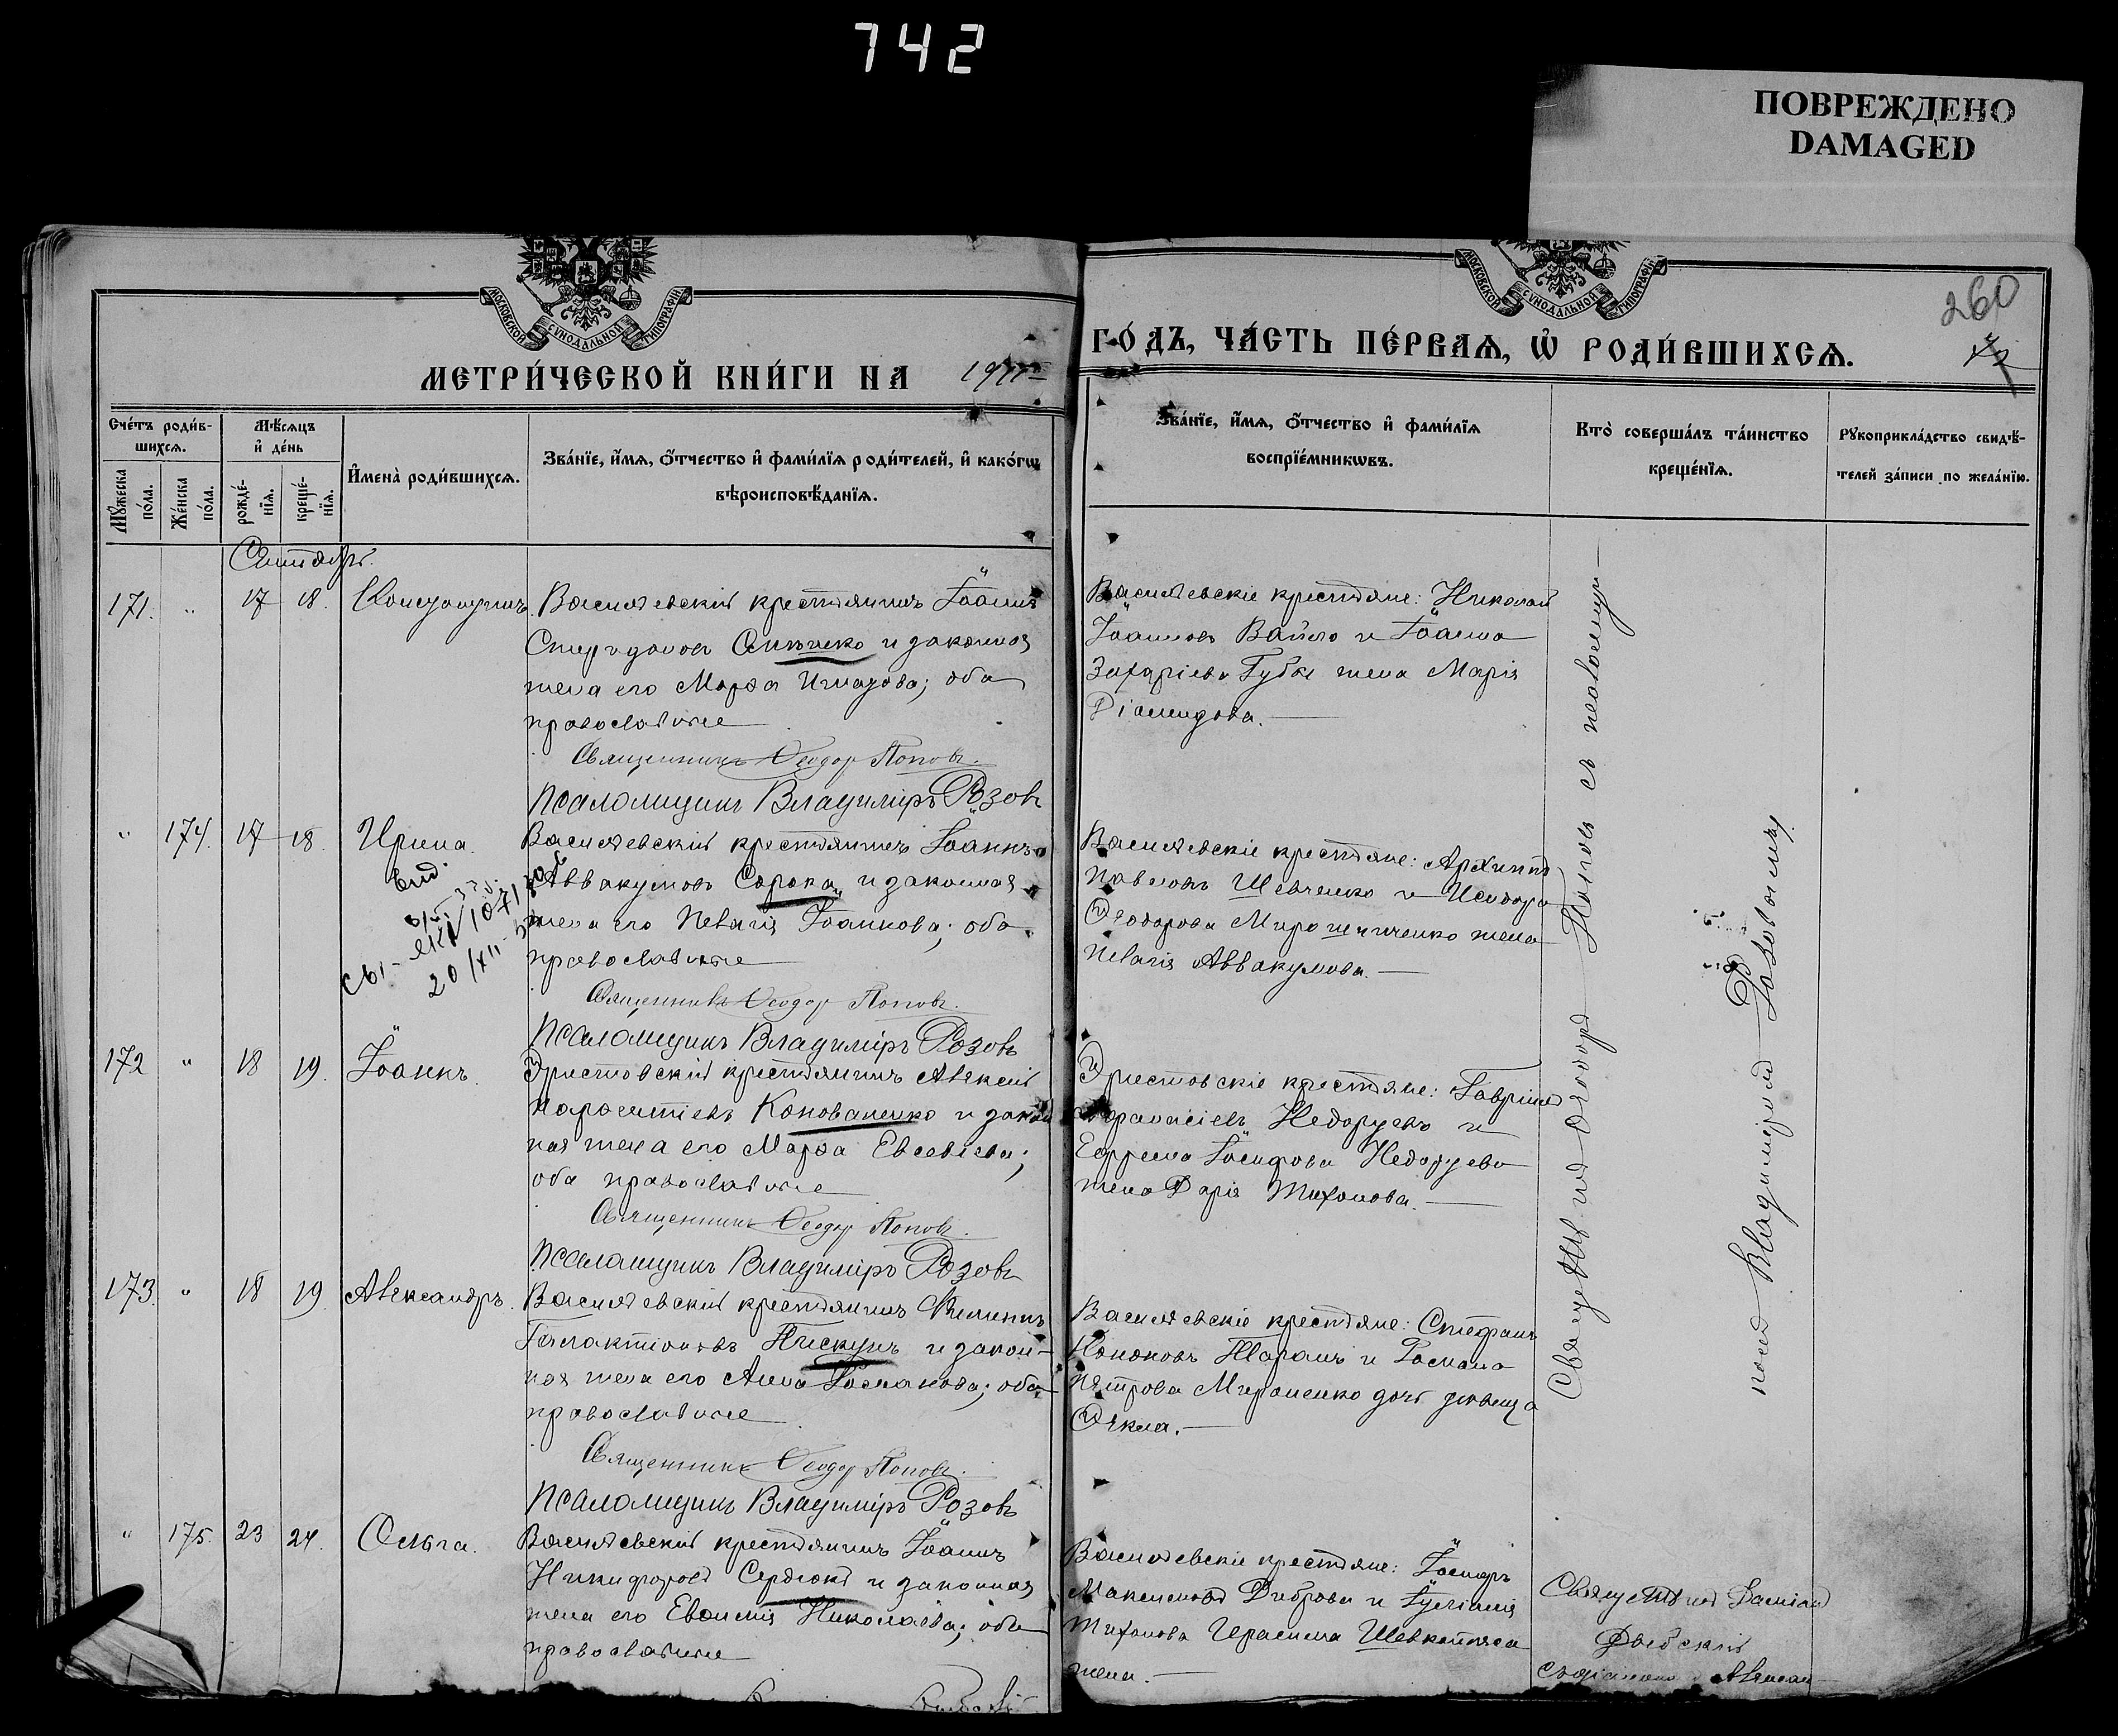 742
ПОВРЕЖДЕНО
DAMAGED
МОСКОВСКОЙ СѴНОДАЛЬНОЙ ТИПОГРАФІИ.
МОСКОВСКОЙ СѴНОДАЛЬНОЙ ТИПОГРАФІИ.
260
МЕТРИ́ЧЕСКОЙ КНИ́ГИ НА
ГО́ДЪ, ЧА́СТЬ ПЕ́РВАѦ, Ѡ҆ РОДИ́ВШИХСѦ.
Сче́тъ роди́в-
шихсѧ.
Мꙋ́жеска по́ла.
Же́нска по́ла.
Мѣ́сѧцъ
и҆ де́нь
рожде́-
нїѧ.
креще́-
нїѧ.
И҆мена̀ роди́вшихсѧ.
Зва́нїе, и҆́мѧ, ѻ҆́тчество и҆ фами́лїѧ роди́телей, и҆ како́гѡ
вѣроисповѣ́данїѧ.
Зва́нїе, и҆́мѧ, ѻ҆́тчество и҆ фами́лїѧ
воспрїе́мникѡвъ.
Кто̀ соверша́лъ та́инство
креще́нїѧ.
Рꙋкоприкла́дство свидѣ́-
телей за́писи по жела́нїю.
Сентябрь.
171. " 17 18. Константинъ.
Васильевскій крестьянинъ Іоаннъ
Спиридоновъ и законная
жена его Марѳа Игнатова; оба
православные
Священникъ Ѳеодоръ Поповъ.
Псаломщикъ Владиміръ Розовъ
Васильевскіе крестьяне: Николай
Іоанновъ Вайло и Іоанна
Захаріева Губы жена Марія
Діомидова.
" 174. 17 18. Ирина.
20/XII-
Васильевскій крестьянинъ Іоаннъ
Аввакумовъ Сорока и законная
жена его Пелагія Іоаннова; оба
православные
Священникъ Ѳеодоръ Поповъ.
Псаломщикъ Владиміръ Розовъ
Васильевскіе крестьяне: Архиппъ
Павловъ Шевченко и Исидора
Ѳеодорова Мирошниченко жена
Пелагія Аввакумова.
172 " 18 19. Іоаннъ.
Христовскій крестьянинъ Алексій
Парѳентіевъ Коноваленко и закон
ная жена его Марѳа Евсевіева;
оба православные
Священникъ Ѳеодоръ Поповъ.
Псаломщикъ Владиміръ Розовъ
Христовскіе крестьяне: Гавріилъ
Аѳанасіевъ Недоруевъ и
Ефрема Іосифова Недоруева
жена Дарія Тихонова.
173. " 18 19. Александръ.
Васильевскій крестьянинъ Филиппъ
Галактіоновъ Пискунъ и закон-
ная жена его Анна Романова; оба
православные
Священникъ Ѳеодоръ Поповъ.
Псаломщикъ Владиміръ Розовъ
Васильевскіе крестьяне: Стефанъ
Кононовъ Таранъ и Романа
Петрова Мироненко дочь дѣвица
Ѳекла.
" 175. 23 24. Ольга.
Васильевскій крестьянинъ Іоаннъ
Никифоровъ Сердюкъ и законная
жена его Евѳимія Николаева; оба
православные
Васильевскіе крестьяне: Іосифъ
Максимовъ Диброва и Іуліанія
Тихонова Герасима Шевкопляса
жена.
Священникъ Ѳеодоръ Поповъ съ псаломщи-
комъ Владиміромъ Розовымъ.
Священникъ Даміанъ